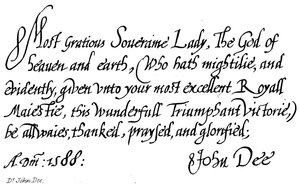 Most Gratious Soueraine Lady, The God of
heauen and earth, (Who hath mightilie, and
evidently, given vnto your most excellent Royall
Maiestie, this wunderfull Triumphant Victorie,)
be allwaies, thanked, praysed, and glorified;
A. Dm̄: 1588: John Dee
Dr John Dee.